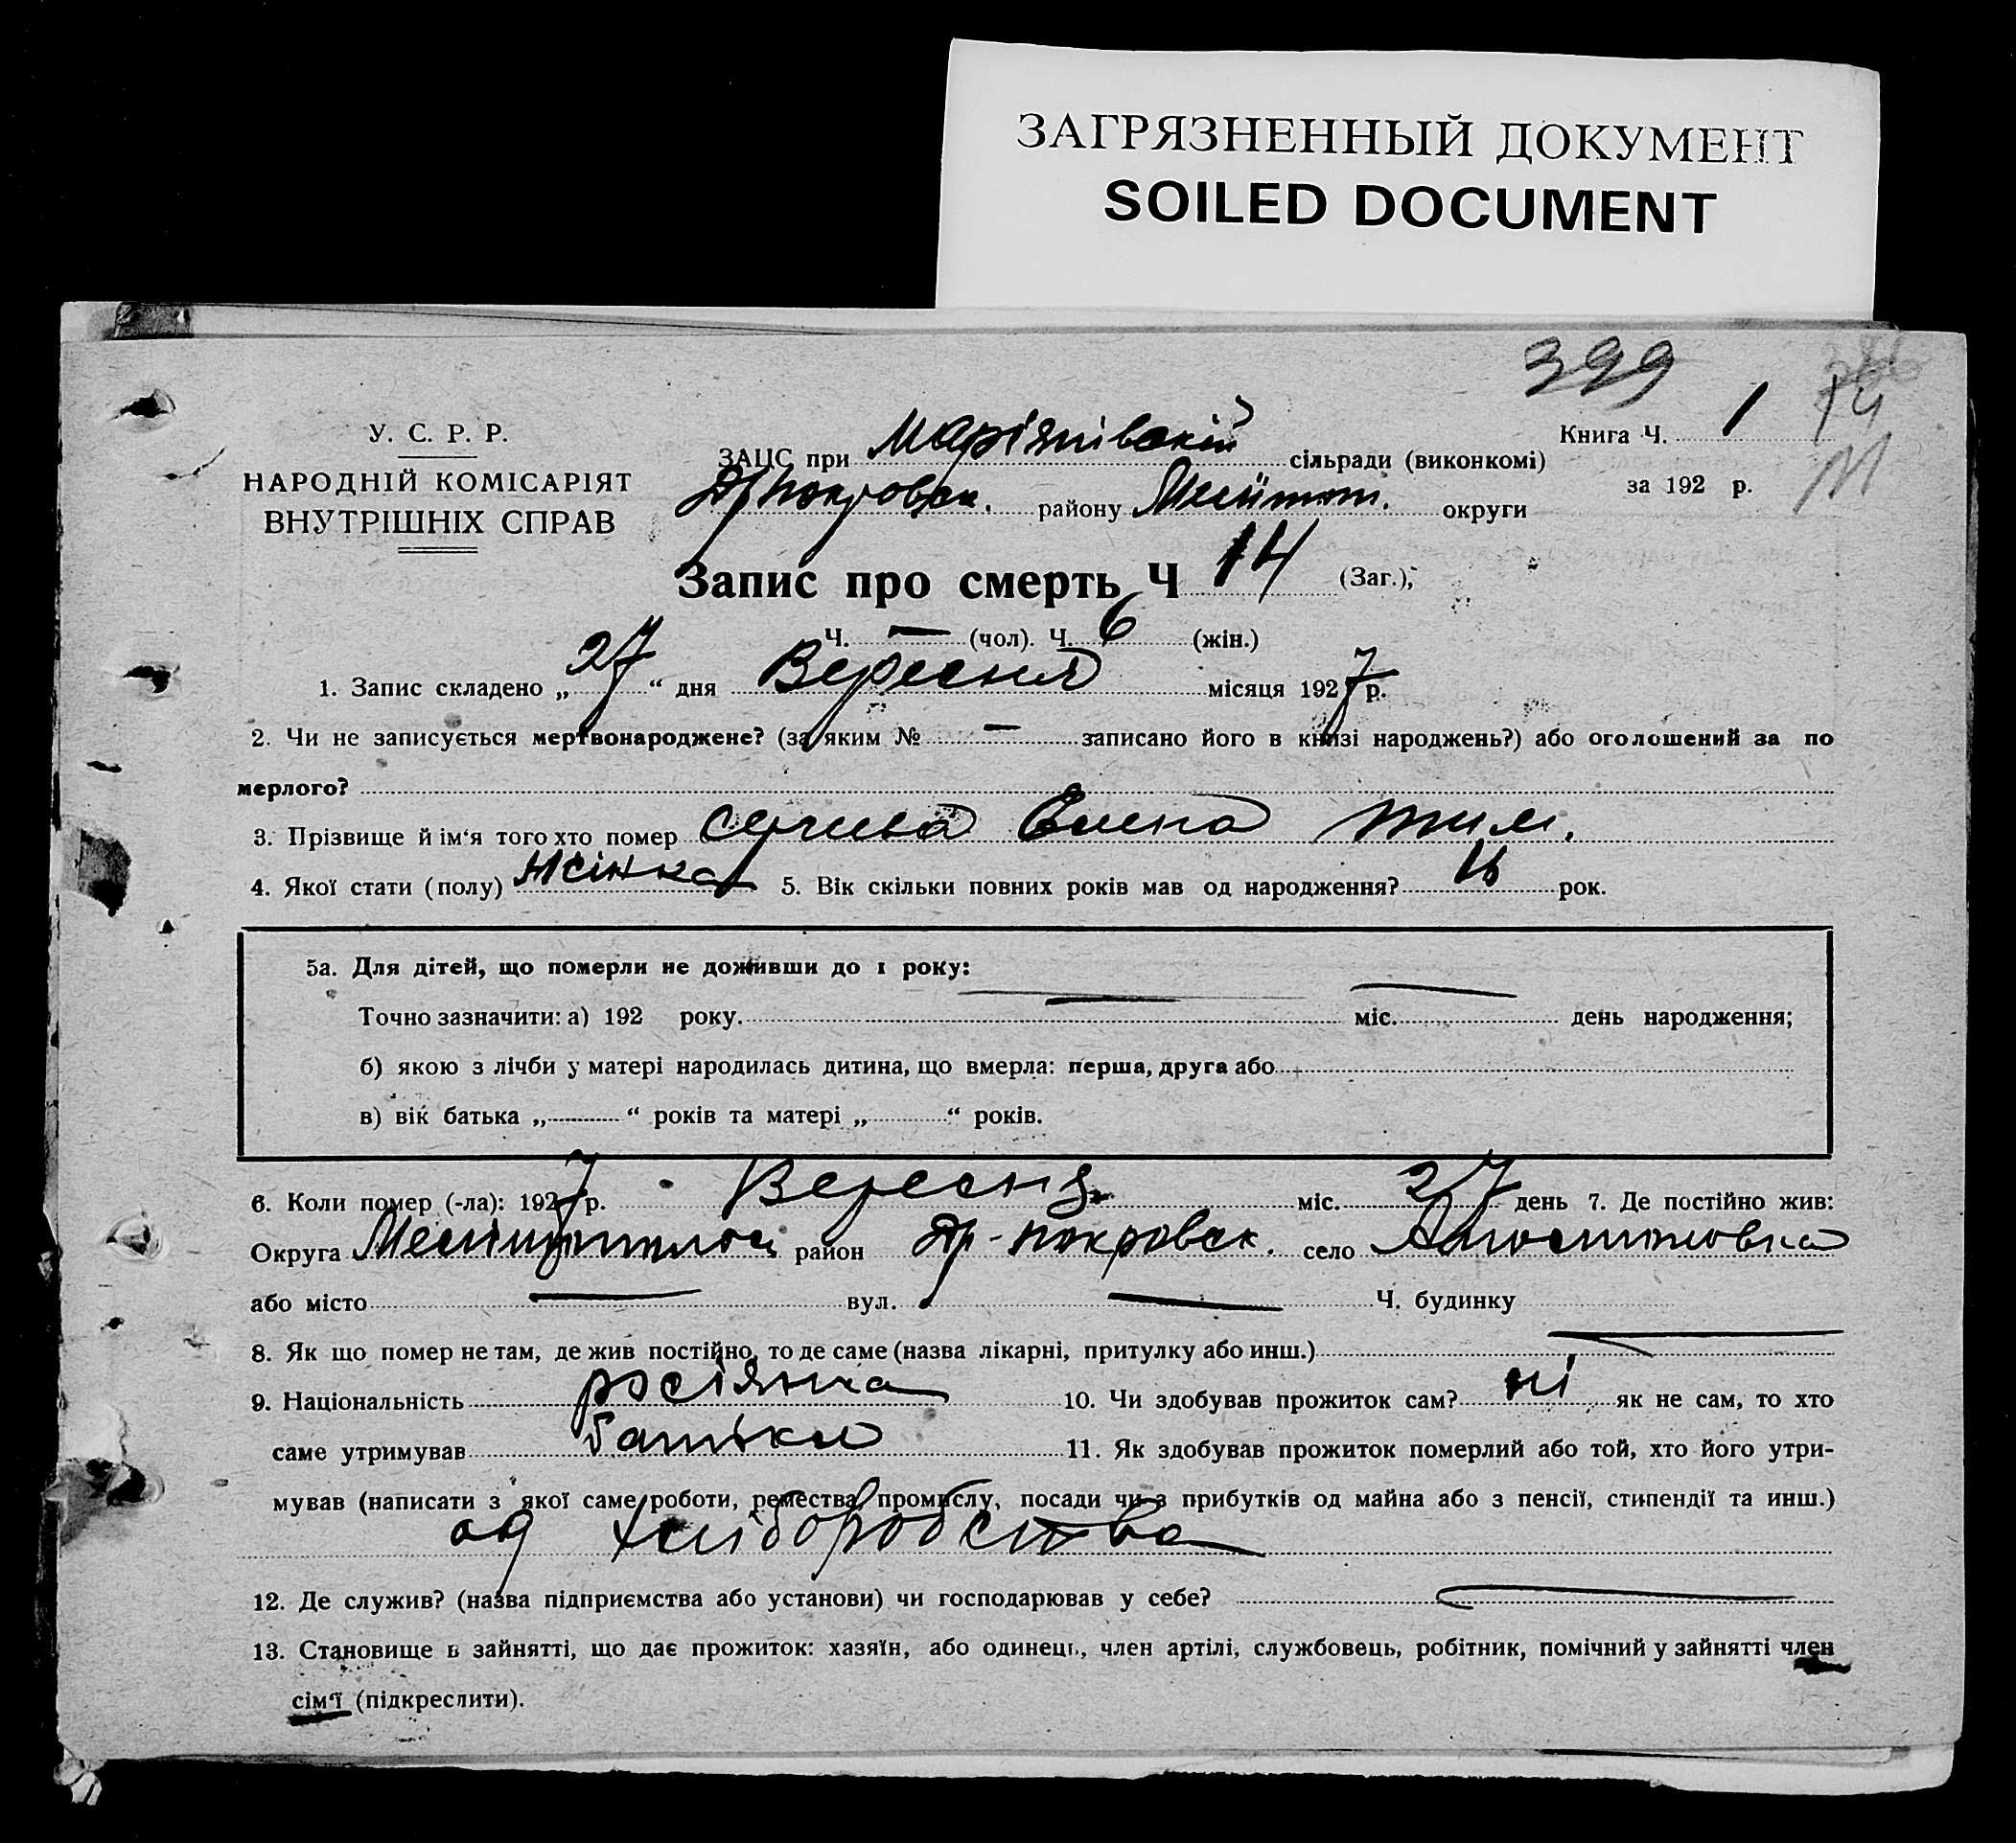 ЗАГРЯЗНЕННЫЙ ДОКУМЕНТ
SOILED DOCUMENT
399
14
У. С. Р. Р.
НАРОДНІЙ КОМІСАРІЯТ
ВНУТРІШНІХ СПРАВ
Книга Ч. 1
ЗАЦС при Маріянівській сільради (виконкомі)
за 192 р.
Др покровск. району Меліт. округи
Запис про смерть Ч 14 (Заг.),
Ч. — (чол). Ч. 6 (жін.)
1. Запис складено „27“ дня Вересня місяця 1927 р.
2. Чи не записується мертвонароджене? (за яким № — записано його в книзі народжень?) або оголошений за по
мерлого?
3. Прізвище й ім‘я того хто помер Елена Тим.
4. Якої стати (полу) жінка 5. Вік скільки повних років мав од народження? рок.
5а. Для дітей, що померли не доживши до 1 року:
Точно зазначити: а) 192 року. міс. день народження;
б) якою з лічби у матері народилась дитина, що вмерла: перша, друга або
в) вік батька „ “ років та матері „ “ років.
6. Коли помер (-ла): 1927 р. Вересня міс. 27 день 7. Де постійно жив:
Округа район Др-покровск. село
або місто — вул. — Ч. будинку
8. Як що помер не там, де жив постійно, то де саме (назва лікарні, притулку або инш.) —
9. Національність росіянка 10. Чи здобував прожиток сам? ні як не сам, то хто
саме утримував батьки 11. Як здобував прожиток померлий або той, хто його утри-
мував (написати з якої саме роботи, ремества, промислу, посади чи з прибутків од майна або з пенсії, стипендії та инш.)
од хліборобства
12. Де служив? (назва підприємства або установи) чи господарював у себе? —
13. Становище в зайнятті, що дає прожиток: хазяїн, або одинець, член артілі, службовець, робітник, помічний у зайнятті член
сім‘ї (підкреслити).